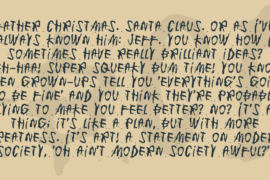 ATHER CHRISTMAS. SANTA CLAUS. OR AS I'V
ALWAYS KNOWN HIM: JEFF. YOU KNOW HOW
SOMETIMES HAVE REALLY BRILLIANT IDEAS?
H-HAA! SUPER SQUEAKY BUM TIME! YOU KNO
EN GROWN-UPS TELL YOU 'EVERYTHING'S GO
O BE FINE' AND YOU THINK THEY'RE PROBAB
YING TO MAKE YOU FEEL BETTER? NO? IT'S A
THING; IT'S LIKE A PLAN, BUT WITH MORE
REATNESS. IT'S ART! A STATEMENT ON MODE
SOCIETY, 'OH AIN'T MODERN SOCIETY AWFUL?'